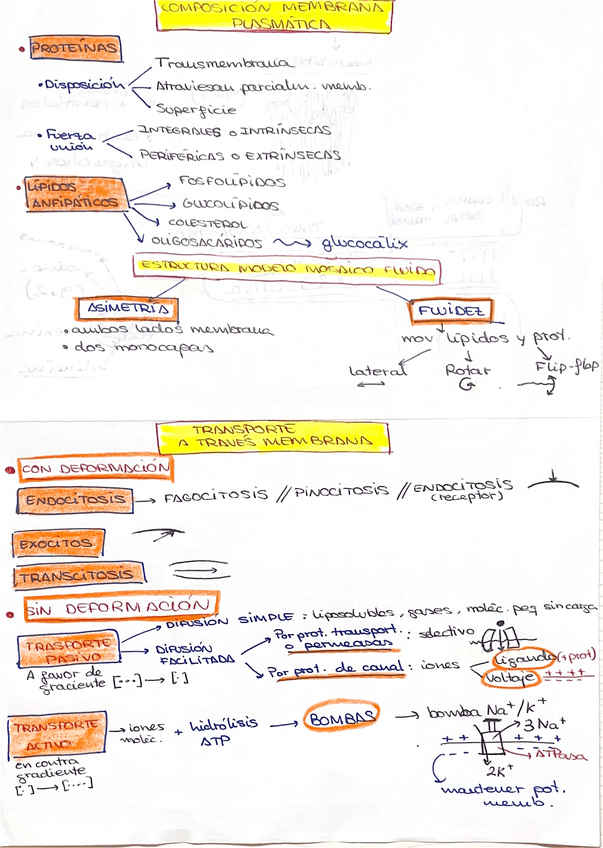 COMPOSICIÓN MEMBRANA
PLASMÁTICA
• PROTEÍNAS
Transmembrana
• Disposición
Atraviesan parcialm. memb.
Superficie
• Fuerza unión
INTEGRALES o INTRÍNSECAS
PERIFÉRICAS O EXTRÍNSECAS
• LÍPIDOS ANFIPÁTICOS
FOSFOLÍPIDOS
GLUCOLÍPIDOS
COLESTEROL
OLIGOSACÁRIDOS glucocálix
ESTRUCTURA MODELO MOSAICO FLUIDO
ASIMETRÍA
• ambos lados membrana
• dos monocapas
FLUIDEZ
mov. lípidos y prot.
lateral Rotar Flip-flop
TRANSPORTE
A TRAVÉS MEMBRANA
• CON DEFORMACIÓN
ENDOCITOSIS → FAGOCITOSIS // PINOCITOSIS // ENDOCITOSIS
(receptor)
EXOCITOS
TRANSCITOSIS
• SIN DEFORMACIÓN
TRASPORTE PASIVO
A favor de
graciente [...] → [·]
DIFUSIÓN SIMPLE : liposolubles, gases, moléc. peq sin carga
DIFUSIÓN FACILITADA
Por prot. transport. o permeasas : selectivo
Por prot. de canal : iones
ligando (+prot)
voltaje ++++
----
TRANSPORTE ACTIVO
en contra
gradiente
[·] → [....]
→ iones moléc. + hidrólisis ATP → BOMBAS → bomba Na⁺/K⁺
3 Na⁺
++ +++
-- --
ATPasa
2K⁺
mantener pot.
memb.